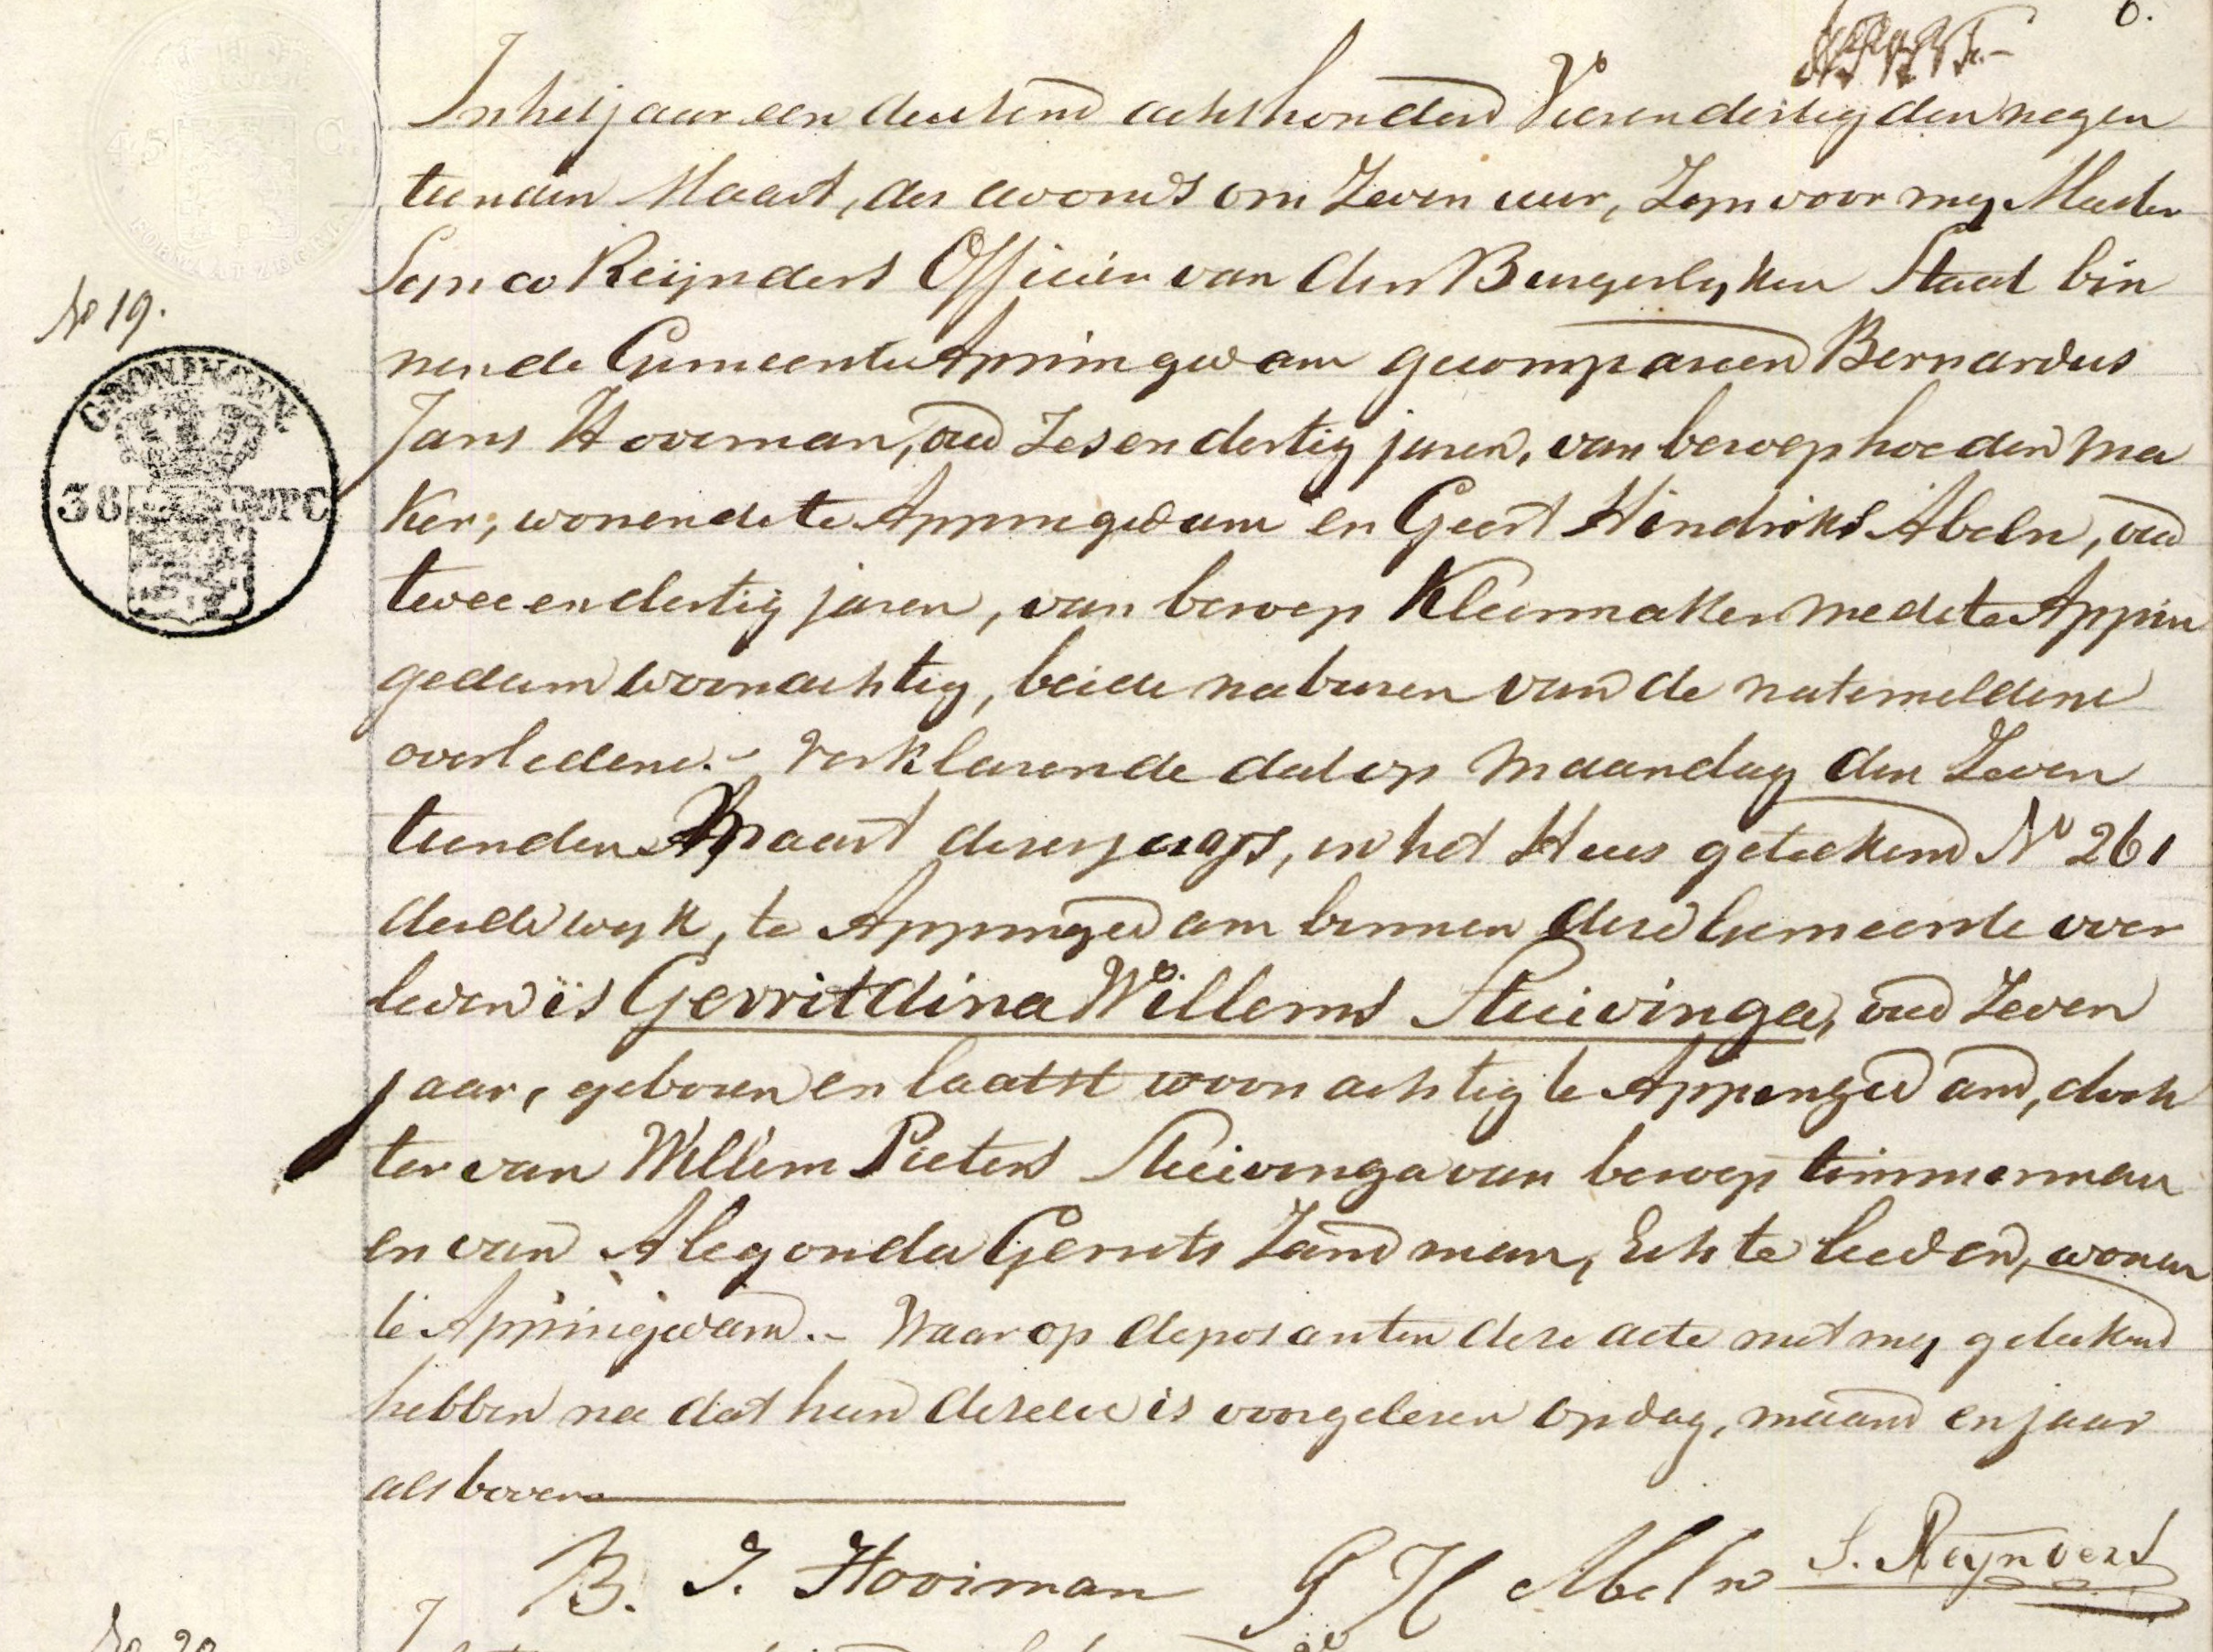 6.
In het jaar een duisend acht honderd Vier en dertig den negen
tienden Maart, des avonds om Zeven uur, Zyn voor my Meester
Synco Reijnders Officier van den Burgerlyken Staat bin
nen de Gemeente Appingedam gecompareerd Bernardus
No 19.
Jans Hooiman, oud Zes en dertig jaren, van beroep hoeden ma
GRONINGEN
38 OPC
ker, wonende te Appingedam en Geert Hindriks Abeln, oud
twee en dertig jaren, van beroep Kleermaker mede te Appin
gedam woonachtig, beide naburen van de natemeldene
overledene. - Verklarende dat op Maandag den Zeven
tienden Maart dezes jaars, in het Huis geteekend No 261
derde wyk, te Appingedam binnen dese Gemeente over
leden is Gerritdina Willems Stuivinga, oud Zeven
jaar, geboren en laatst woonachtig te Appingedam, doch
ter van Willem Pieters Stuivinga van beroep timmerman
en van Alegonda Gerrits Zandman, Echte lieden, wonen
te Appingedam. - Waarop deposanten dese acte met my geteekend
hebben na dat hun deselve is voorgelesen op dag, maand en jaar
als boven
B. J. Hooiman G H Abeln S. Reijnders
No 20